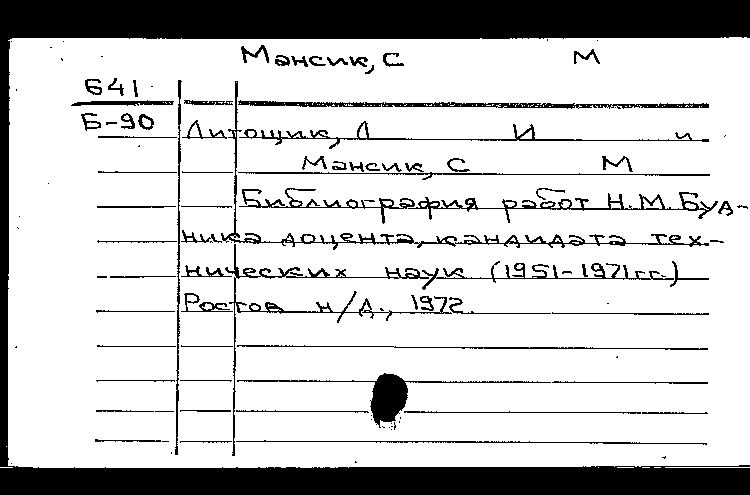 Мансик, С М
641
Б-90
Литощик, Л И и
Мансик, С М
Библиография работ Н.М. Буд-
ника доцента, кандидата тех.-
нических наук (1951-1971гг.)
Ростов н/Д., 1972.